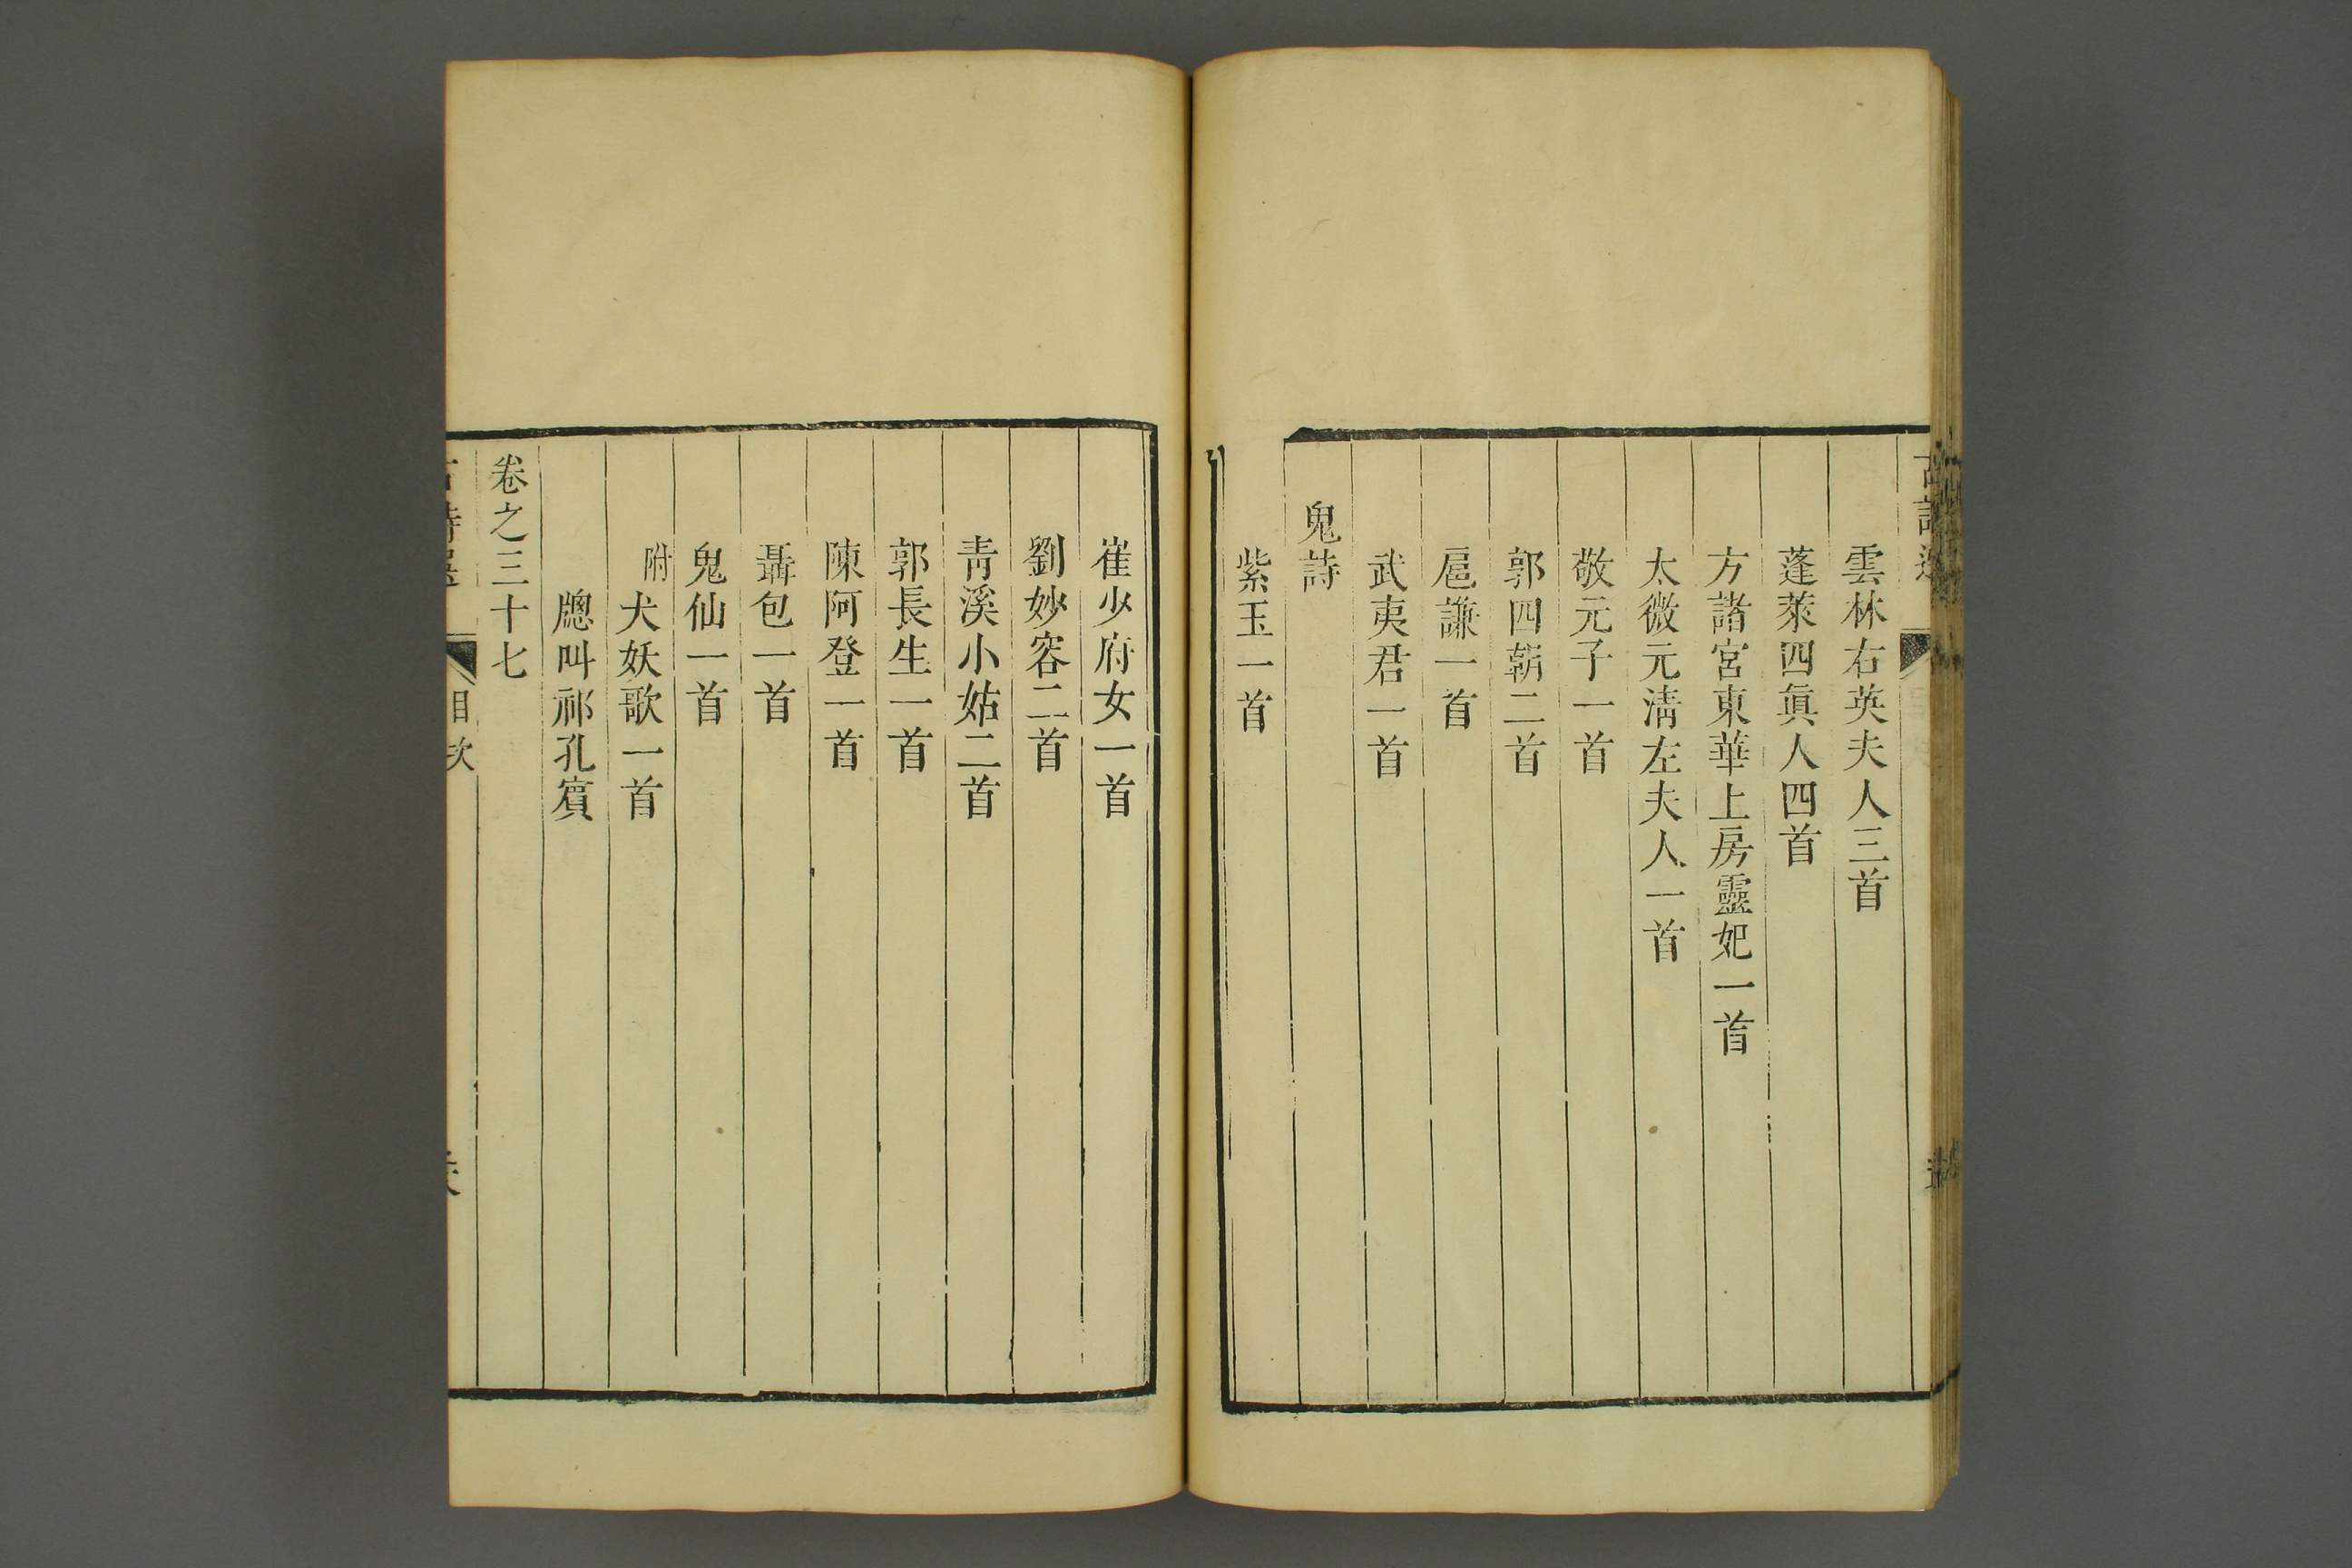 雲林右英夫人三首
蓬萊四眞人四首
方諸宮東華上房靈妃一首
太微元淸左夫人一首
敬元子一首
郭四朝二首
扈謙一首
武夷君一首
鬼詩
紫玉一首
崔少府女一首
劉妙容二首
靑溪小姑二首
郭長生一首
陳阿登一首
聶包一首
鬼仙一首
附犬妖歌一首
牕叫祁孔賓
卷之三十七
目次